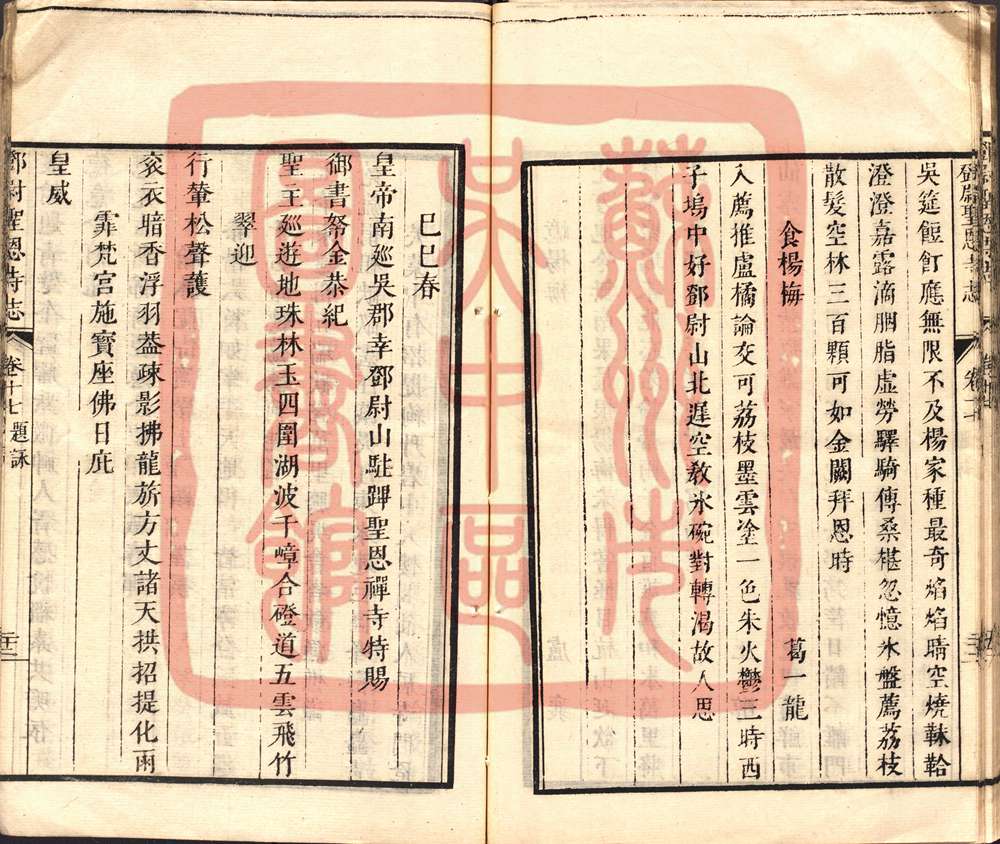 鄧尉聖恩寺志
吳筵飣飣應無限不及楊家種最奇焰焰晴空燒靺鞈
澄澄嘉露滴胭脂虛勞驛騎傳桑椹忽憶氷盤薦荔枝
散髮空林三百顆可如金闕拜恩時
食楊梅 葛一龍
入薦推盧橘論交可荔枝墨雲塗一色朱火鬱三時西
子塢中好鄧尉山北遲空敎氷碗對轉渴故人思
己巳春
皇帝南廵吳郡幸鄧尉山駐蹕聖恩禪寺特賜
御書帑金恭紀
聖主廵遊地珠林玉四圍湖波千嶂合磴道五雲飛竹
翠迎
行輦松聲護
衮衣暗香浮羽葢疎影拂龍旂方丈諸天拱招提化雨
霏梵宮施寶座佛日庇
皇威
鄧尉聖恩寺志 卷十七 題詠 三十二
蘇州市
吳中區
圖書館